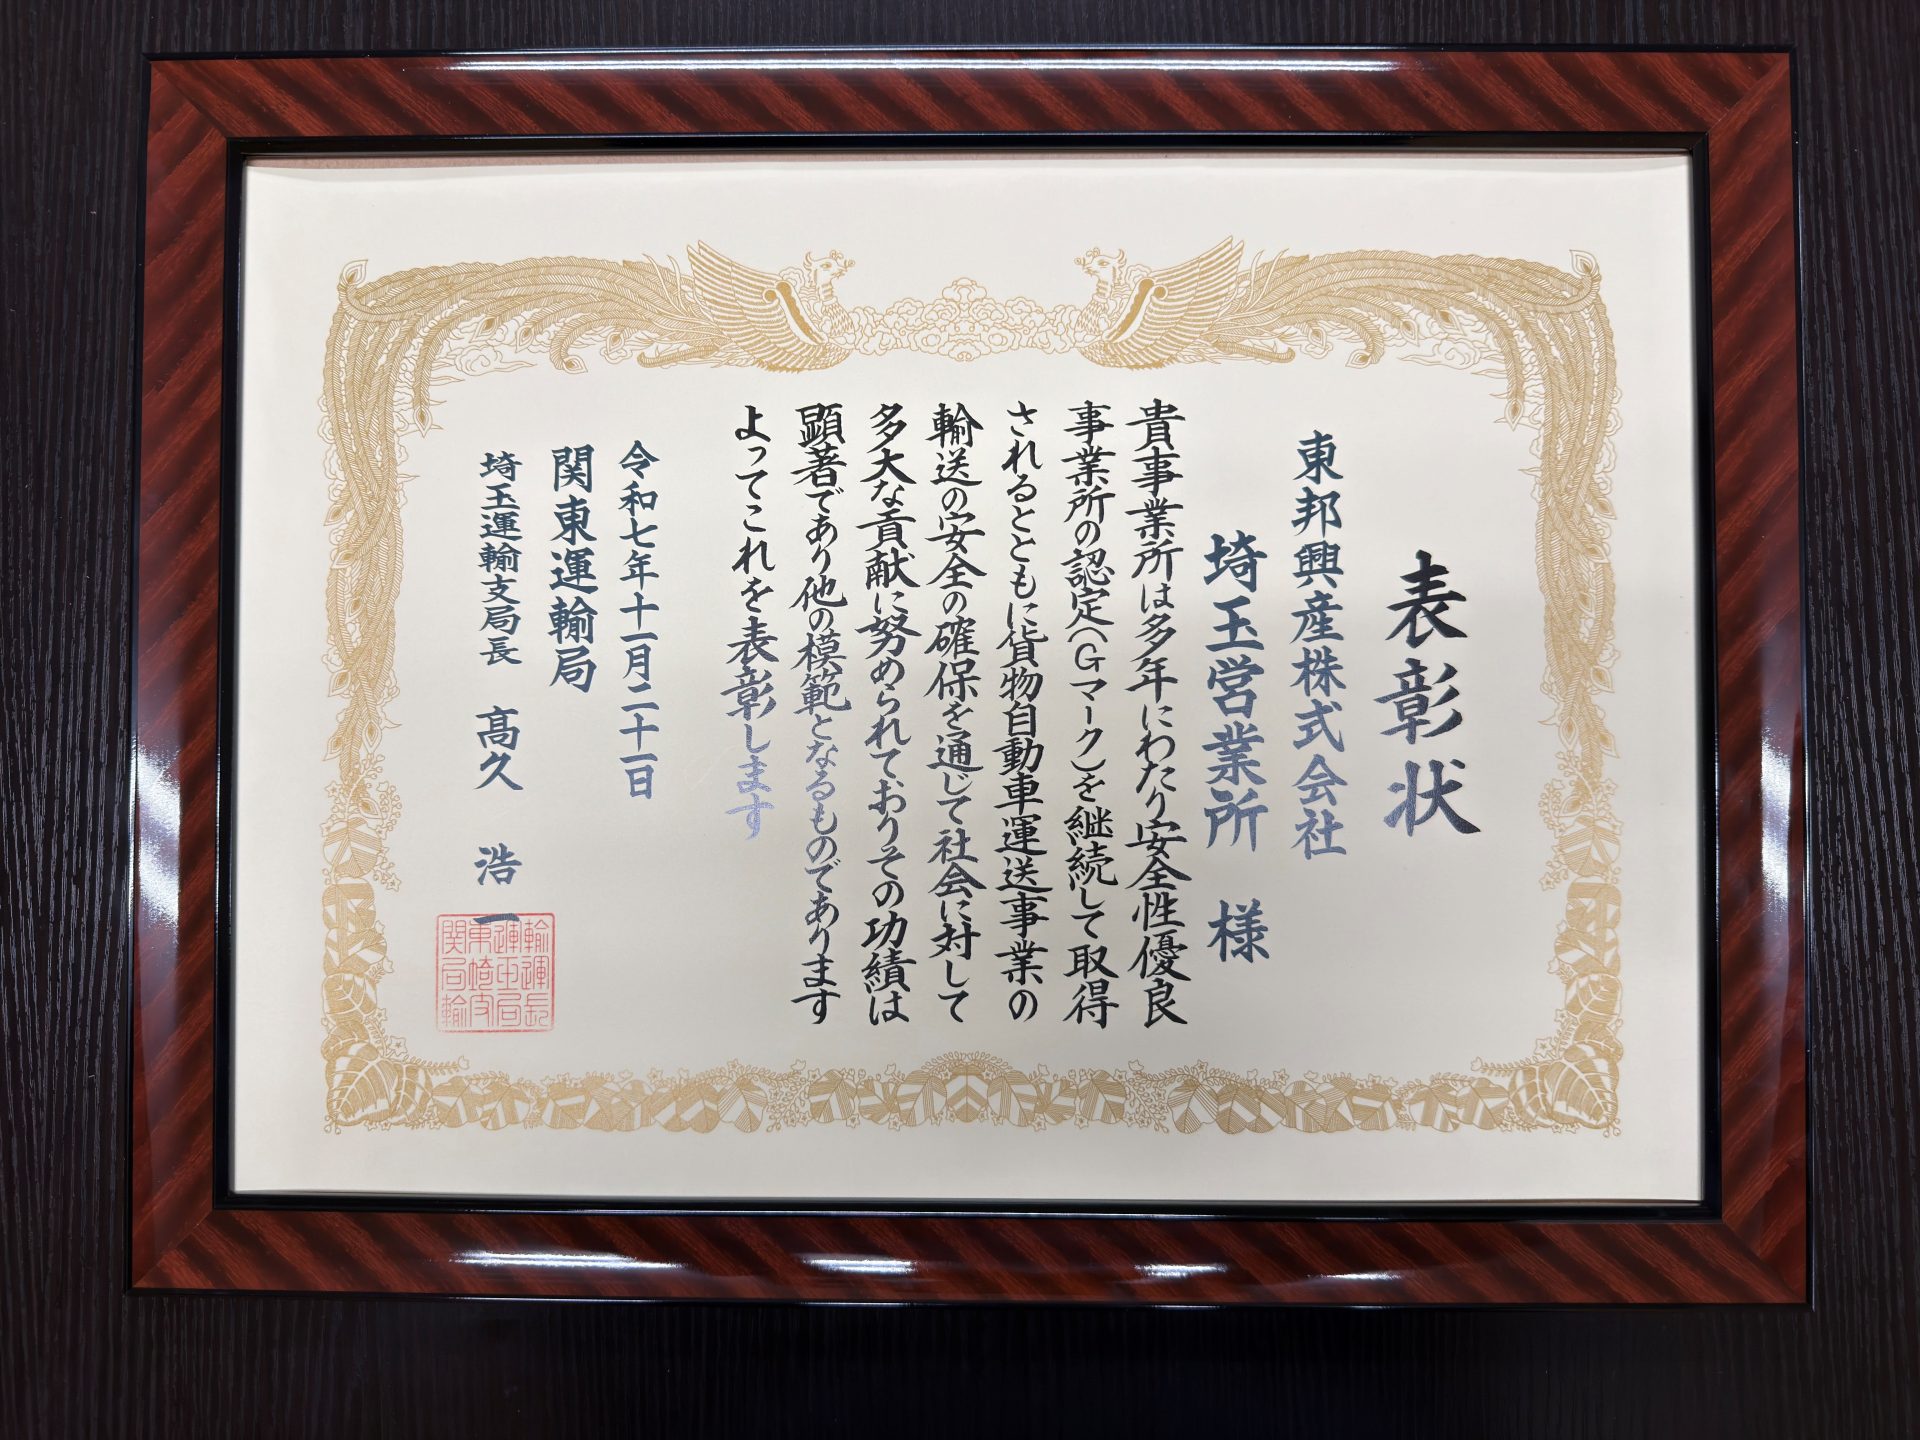 表彰状
東邦興産株式会社
埼玉営業所 様
貴事業所は多年にわたり安全性優良
事業所の認定(Gマーク)を継続して取得
されるとともに貨物自動車運送事業の
輸送の安全の確保を通じて社会に対して
多大な貢献に努められておりその功績は
顕著であり他の模範となるものであります
よってこれを表彰します
令和七年十一月二十一日
関東運輸局
埼玉運輸支局長 髙久 浩一